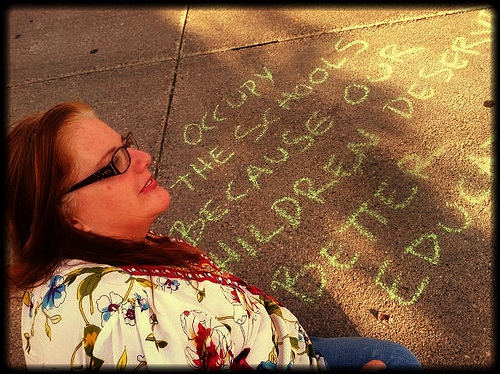 OCCUPY
THE SCHOOLS
BECAUSE OUR
CHILDREN DESERV
BETTER
EDUC